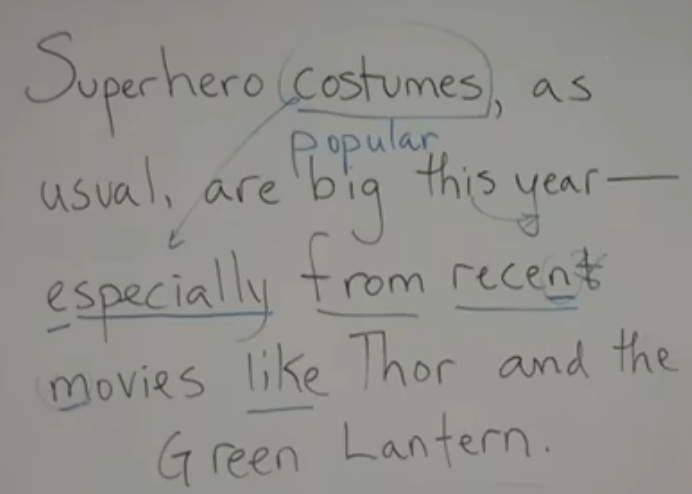 Superhero costumes, as
popular
usual, are big this year—
especially from recent
movies like Thor and the
Green Lantern.